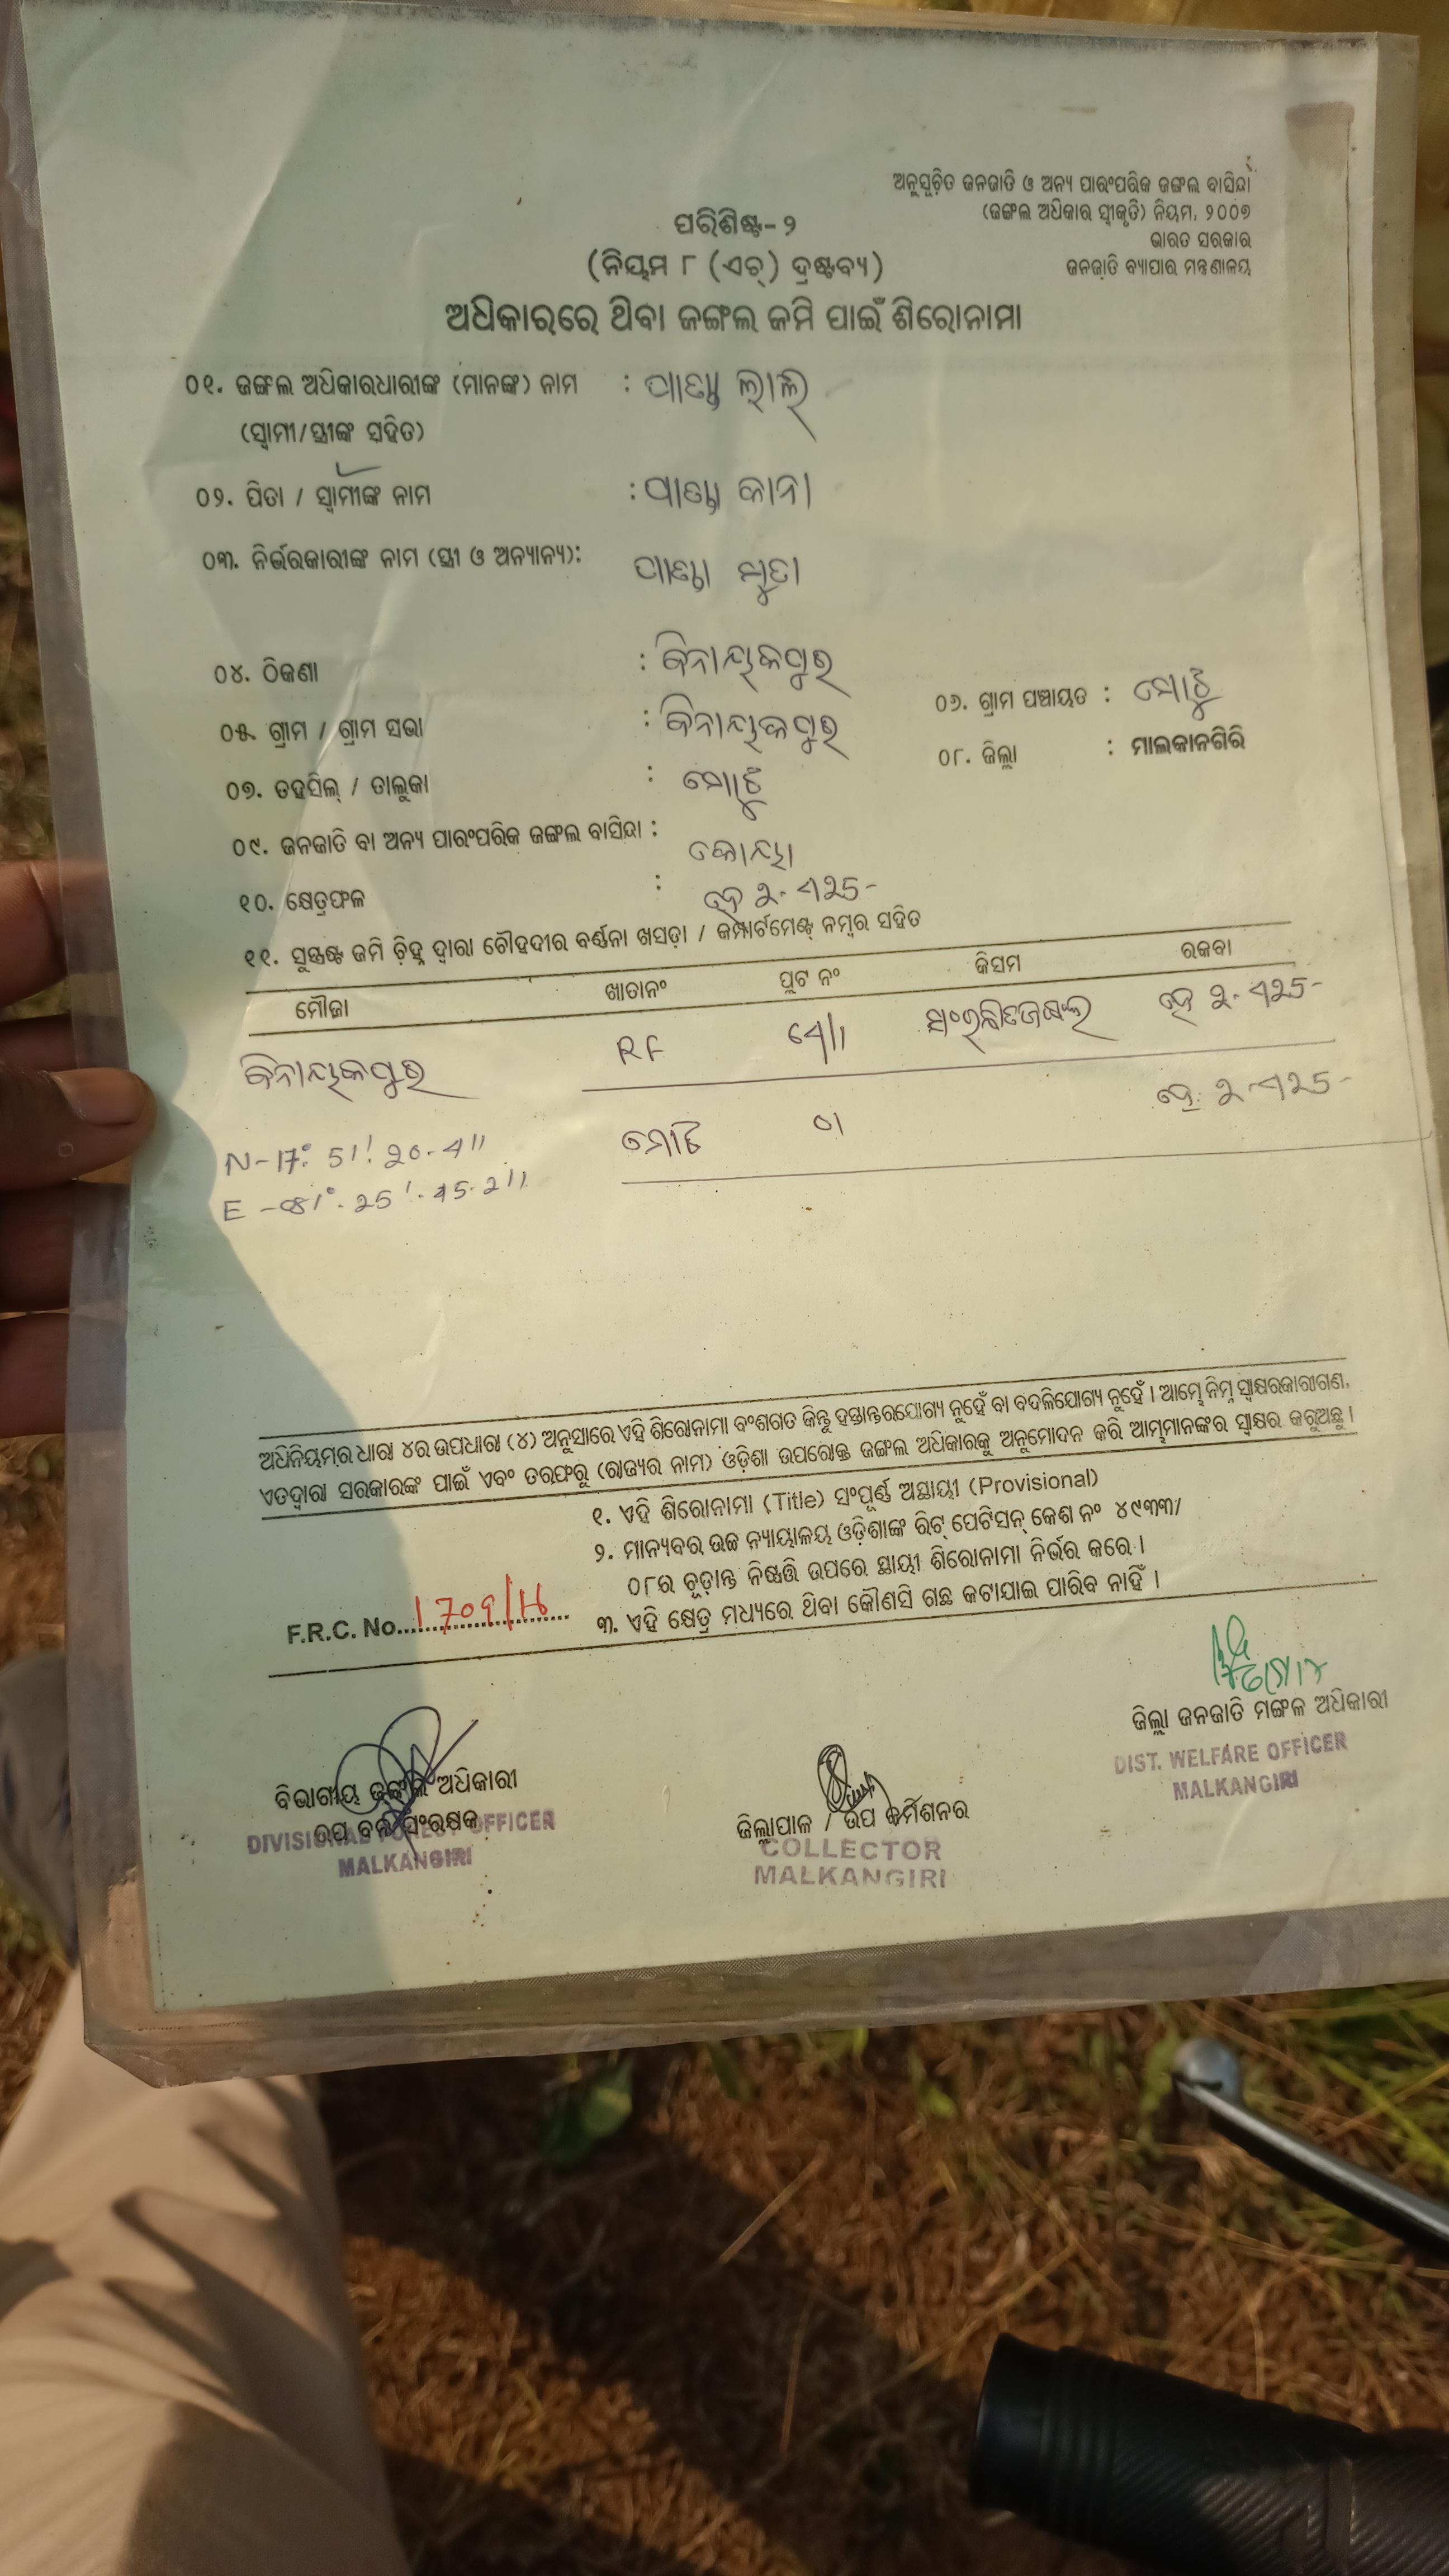 ଅନୁସୂଚିତ ଜନଜାତି ଓ ଅନ୍ୟ ପାରଂପରିକ ଜଙ୍ଗଲ ବାସିନ୍ଦା
(ଜଙ୍ଗଲ ଅଧିକାର ସ୍ୱୀକୃତି) ନିୟମ, ୨୦୦୭
ଭାରତ ସରକାର
ଜନଜାତି ବ୍ୟାପାର ମନ୍ତ୍ରଣାଳୟ
ପରିଶିଷ୍ଟ-୨
(ନିୟମ ୮ (ଏଚ୍) ଦ୍ରଷ୍ଟବ୍ୟ)
ଅଧିକାରରେ ଥିବା ଜଙ୍ଗଲ ଜମି ପାଇଁ ଶିରୋନାମା
୦୧. ଜଙ୍ଗଲ ଅଧିକାରଧାରୀଙ୍କ (ମାନଙ୍କ) ନାମ :
(ସ୍ୱାମୀ/ସ୍ତ୍ରୀଙ୍କ ସହିତ)
୦୨. ପିତା / ସ୍ୱାମୀଙ୍କ ନାମ : କାନା
୦୩. ନିର୍ଭରକାରୀଙ୍କ ନାମ (ସ୍ତ୍ରୀ ଓ ଅନ୍ୟାନ୍ୟ):
୦୪. ଠିକଣା : ବିନାୟକପୁର
୦୫. ଗ୍ରାମ / ଗ୍ରାମ ସଭା : ବିନାୟକପୁର ୦୬. ଗ୍ରାମ ପଞ୍ଚାୟତ : ମୋଟୁ
୦୭. ତହସିଲ୍ / ତାଲୁକା : ମୋଟୁ ୦୮. ଜିଲ୍ଲା : ମାଲକାନଗିରି
୦୯. ଜନଜାତି ବା ଅନ୍ୟ ପାରଂପରିକ ଜଙ୍ଗଲ ବାସିନ୍ଦା : କୋୟା
୧୦. କ୍ଷେତ୍ରଫଳ : ହେ
୧୧. ସୁସ୍ପଷ୍ଟ ଜମି ଚିହ୍ନ ଦ୍ୱାରା ଚୌହଦୀର ବର୍ଣ୍ଣନା ଖସଡ଼ା / କମ୍ପାର୍ଟମେଣ୍ଟ୍ ନମ୍ବର ସହିତ
ମୌଜା ଖାତାନଂ ପ୍ଲଟ ନଂ କିସମ ରକବା
ବିନାୟକପୁର RF ସଂରକ୍ଷିତଜଙ୍ଗଲ ହେ
ମୋଟ ହେ
N-17° 51' 20.4"
E -81° 25' 45.2"
ଅଧିନିୟମର ଧାରା ୪ର ଉପଧାରା (୪) ଅନୁସାରେ ଏହି ଶିରୋନାମା ବଂଶଗତ କିନ୍ତୁ ହସ୍ତାନ୍ତରଯୋଗ୍ୟ ନୁହେଁ ବା ବଦଳିଯୋଗ୍ୟ ନୁହେଁ । ଆମ୍ଭେ ନିମ୍ନ ସ୍ୱାକ୍ଷରକାରୀଗଣ,
ଏତଦ୍ୱାରା ସରକାରଙ୍କ ପାଇଁ ଏବଂ ତରଫରୁ (ରାଜ୍ୟର ନାମ) ଓଡ଼ିଶା ଉପରୋକ୍ତ ଜଙ୍ଗଲ ଅଧିକାରକୁ ଅନୁମୋଦନ କରି ଆମ୍ଭମାନଙ୍କର ସ୍ୱାକ୍ଷର କରୁଅଛୁ ।
୧. ଏହି ଶିରୋନାମା (Title) ସଂପୂର୍ଣ୍ଣ ଅସ୍ଥାୟୀ (Provisional)
୨. ମାନ୍ୟବର ଉଚ୍ଚ ନ୍ୟାୟାଳୟ ଓଡ଼ିଶାଙ୍କ ରିଟ୍ ପେଟିସନ୍ କେଶ ନଂ ୪୯୩୩/
୦୮ର ଚୂଡ଼ାନ୍ତ ନିଷ୍ପତ୍ତି ଉପରେ ସ୍ଥାୟୀ ଶିରୋନାମା ନିର୍ଭର କରେ ।
୩. ଏହି କ୍ଷେତ୍ର ମଧ୍ୟରେ ଥିବା କୌଣସି ଗଛ କଟାଯାଇ ପାରିବ ନାହିଁ ।
F.R.C. No.
ବିଭାଗୀୟ ଜଙ୍ଗଲ ଅଧିକାରୀ
ଉପ ବନ ସଂରକ୍ଷକ
DIVISIONAL FOREST OFFICER
MALKANGIRI
ଜିଲ୍ଲାପାଳ / ଉପ କମିଶନର
COLLECTOR
MALKANGIRI
ଜିଲ୍ଲା ଜନଜାତି ମଙ୍ଗଳ ଅଧିକାରୀ
DIST. WELFARE OFFICER
MALKANGIRI